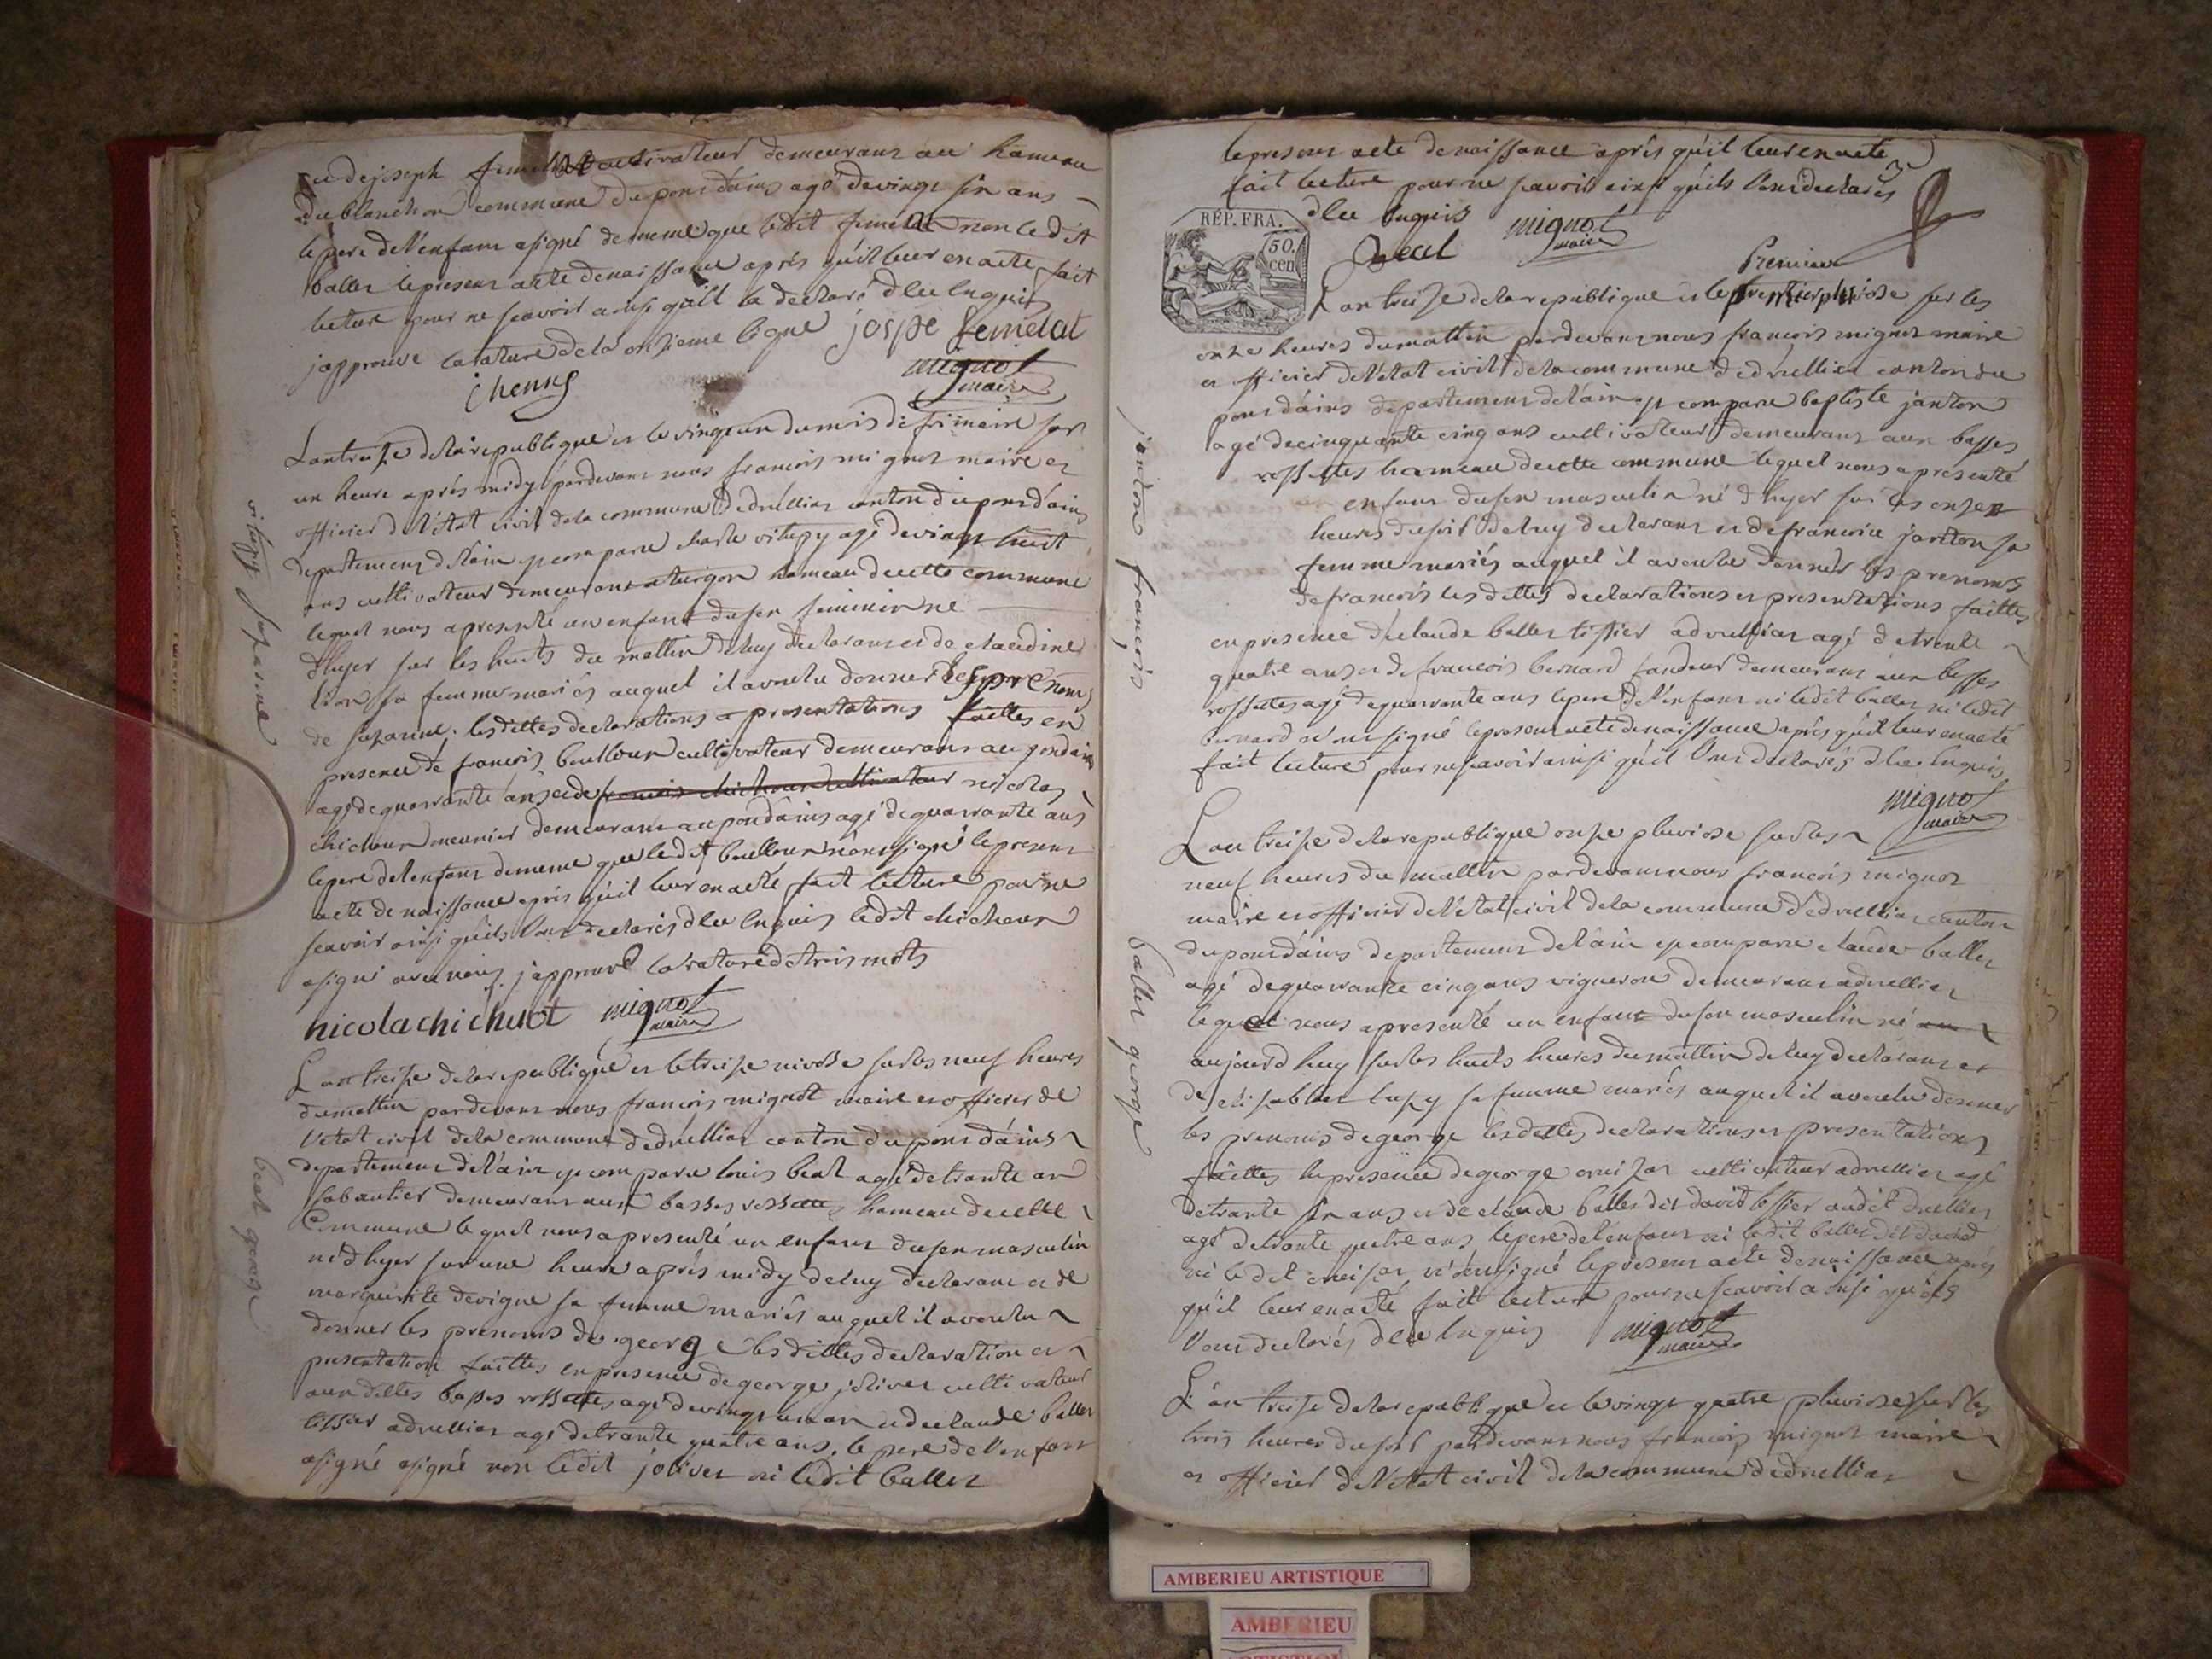 et de joseph femelat cultivateur demeurant au hameau
du blanchon commune du pont dains agé de vingt six ans
le pere de l'enfant a signé de meme que ledit femelat non ledit
ballet le present acte de naissance aprés qu'il leur en a eté fait
lecture pour ne scavoir ainsi qu'il la declaré dlee Enquis
japprouve la rature de la onzieme ligne jospe femelat
mignot
maire
vitupy suzanne
Lan treize de la republique et le vingt un du mois de frimaire sur
un heure aprés midy pardevant nous francois mignot maire et
officier de l'état civil de la commune de druillia canton du pont d'ains
departement de l'ain y comparu charle vitupy agé de vingt huit
ans cultivateur demeurant a turgon hameau de cette commune
lequel nous a presenté un enfant du sex feminin né
d'hyer sur les huits du mattin de luy declarant et de claudine
lion sa femme mariés auquel il a voulu donner les prenoms
de suzanne. les dittes declarations et presentations faittes en
presence de francois boulleur cultivateur demeurant au pondains
agé de quarrante ans et de francois chichoux cultivateur nicolas
chichoux meunier demeurant au pondains agé de quarrante ans
le pere de l'enfant de meme que ledit boulleur n'ont signé le present
acte de naissance aprés qu'il leur en a eté fait lecture pour ne
scavoir ainsi qu'ils l'ont declarés dlee Enquis ledit chichoux
a signé avec nous j'approuve la rature de trois mots
nicola chichuot mignot
maire
beal george
L an treize de la republique et le treize nivose sur les neuf heures
du mattin pardevant nous francois mignot maire et officier de
l'état civil de la commune de druillia canton du pont dains
departement de l'ain y comparu louis beal agé de trante an
sabautier demeurant aux basses rossettes hameau de cette
Commune lequel nous a presenté un enfant du sex masculin
né d'hyer sur une heure aprés midy de luy declarant et de
marguerite devigne sa femme mariés auquel il a voulu
donner les prenoms de george les dittes declaration et
presentation faittes en presence de george joliver cultivateur
aux dittes basses rossettes agé de vingt un an et de claude ballet
tissier a druillia agé de trante quatre ans. le pere de l'enfant
a signé a signé non ledit joliver ni ledit ballet
le present acte de naissance aprés qu'il leur en a eté
fait lecture pour ne scavoir ainsi qu'ils l'ont declarés
dlee Enquis mignot
maire
beal
RÉP. FRA.
50.
cen
janton françois
Premier
L an treize de la republique et le premier pluviose sur les
onze heures du mattin pardevant nous francois mignot maire
et officier de l'état civil de la commune de druillia canton du
pont d'ains departement de l'ain y comparu baptiste janton
agé de cinquante cinq ans cultivateur demeurant aux basses
rossettes hameau de cette commune lequel nous a presenté
enfant du sex masculin né d'hyer sur les onze
heures du soir de luy declarant et de francoise janton sa
femme mariés auquel il a voulu donner les prenoms
de francois les dittes declarations et presentations faittes
en presence de claude ballet tissier a druillia agé de trente
quatre ans et de francois bernard fandeur demeurant aux basses
rossettes agé de quarrante ans le pere de l'enfant ni ledit ballet ni ledit
bernard n'ont signé le present acte de naissance aprés qu'il leur en a eté
fait lecture pour ne scavoir ainsi qu'il l'ont declarés dlee Enquis
mignot
maire
ballet george
L an treize de la republique onze pluviose sur les
neuf heures du mattin pardevant nous francois mignot
maire et officier de l'état civil de la commune de druillia canton
du pont d'ains departement de l'ain y comparu claude ballet
agé de quarrante cinq ans vigneron demeurant a druillia
lequel nous a presenté un enfant du sex masculin né
aujourd huy sur les huits heures du mattin de luy declarant et
de sa femme mariés auquel il a voulu donner
les prenoms de george les dittes declarations et presentations
faittes en presence de george croizat cultivateur a druillia agé
de trante six ans et de claude ballet dit david tissier audit druillia
agé de trante quatre ans le pere de l'enfant ni ledit ballet dit david
ni ledit croizat n'ont signé le present acte de naissance aprés
qu'il leur en a eté fait lecture pour ne scavoir ainsi qu'ils
l'ont declarés dlee Enquis mignot
maire
L an treize de la republique et le vingt quatre pluviose sur les
trois heures du soir pardevant nous francois mignot maire
et officier de l'état civil de la commune de druillia
AMBERIEU ARTISTIQUE
AMBERIEU